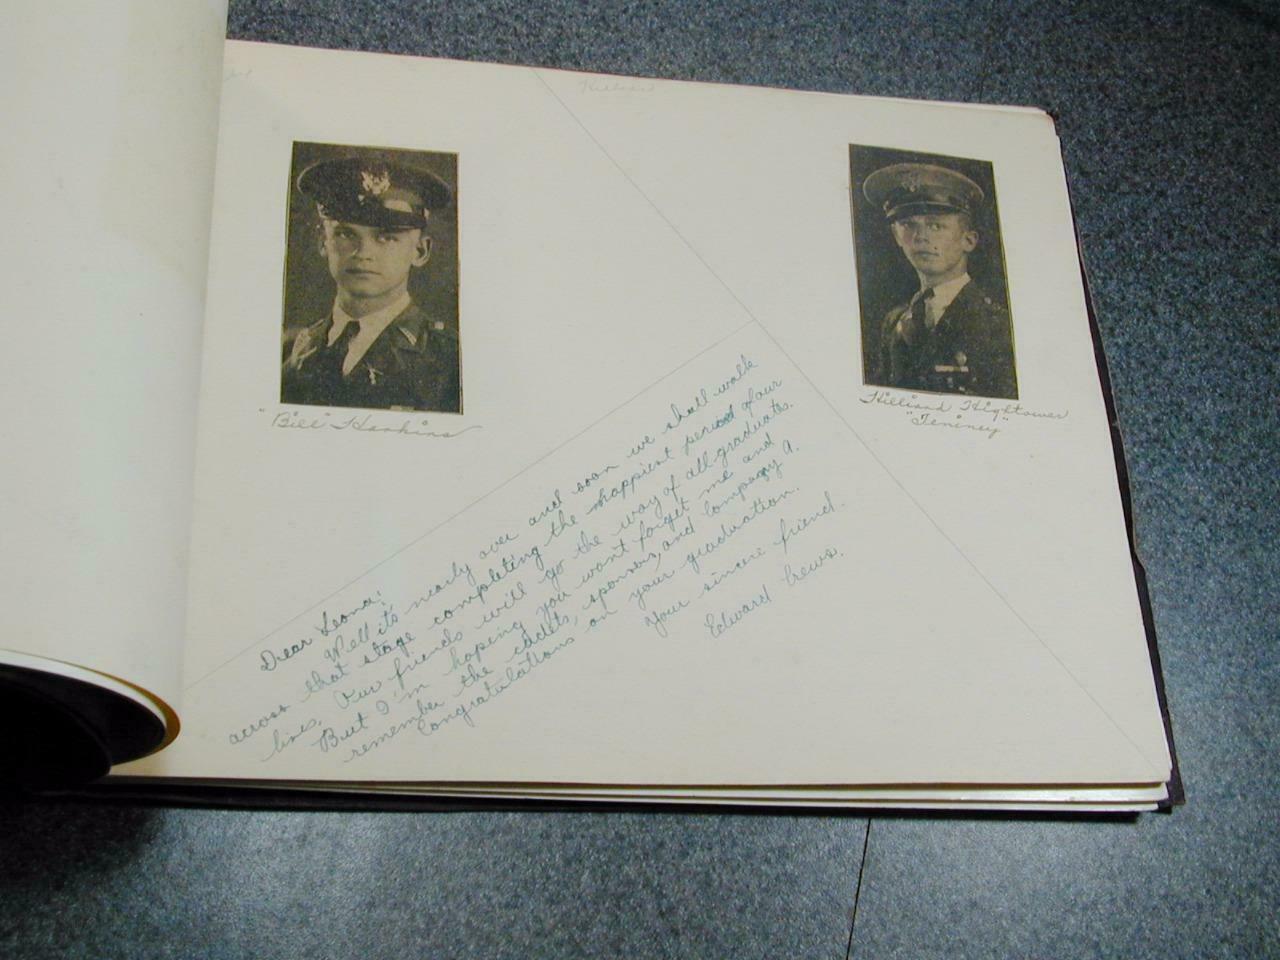 Hilliard
"Bill" Harkins
Hilliard Hightower
"Teniney"
Dear Leona:
Well it's nearly over and soon we shall walk
across that stage completing the happiest period of our
lives. Our friends will go the way of all graduates.
But I'm hoping you won't forget me and
remember the cadets, sponsors, and Company A.
Congratulations on your graduation.
Your sincere friend.
Edward Crews.